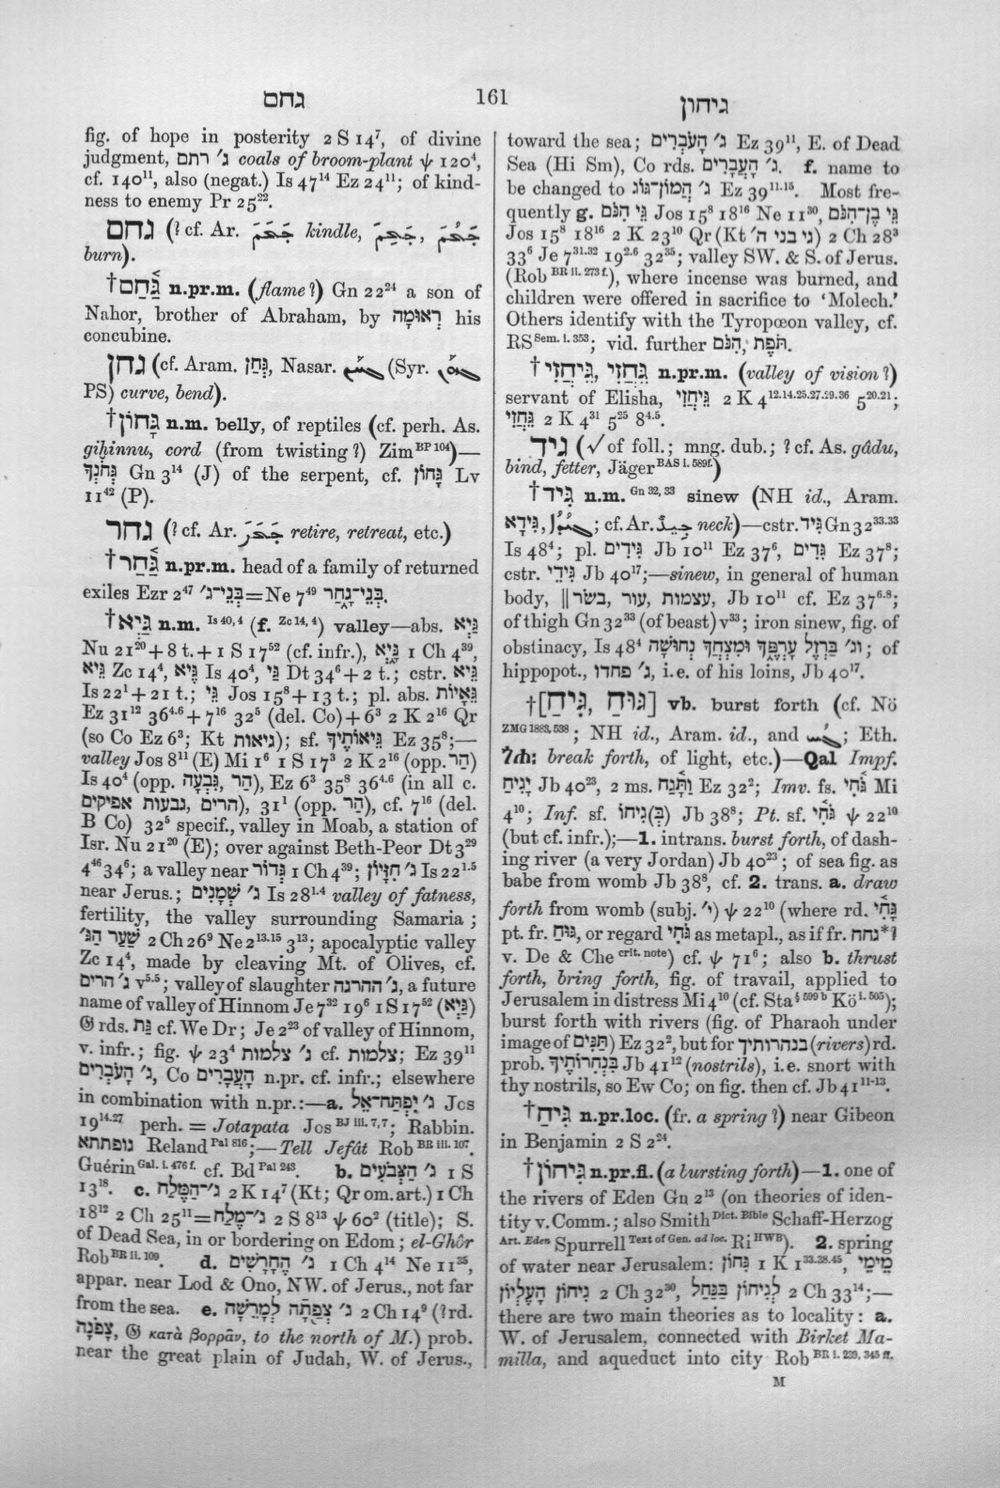 גחם
161
גיחון
fig. of hope in posterity 2 S 14⁷, of divine
judgment, ג׳ רתם coals of broom-plant ψ 120⁴,
cf. 140¹¹, also (negat.) Is 47¹⁴ Ez 24¹¹; of kind-
ness to enemy Pr 25²².
גחם (? cf. Ar. جَحَمَ kindle, جَحِمَ, جَحُمَ
burn).
†גַּ֫חַם n.pr.m. (flame?) Gn 22²⁴ a son of
Nahor, brother of Abraham, by רְאוּמָה his
concubine.
גחן (cf. Aram. גְּחַן, Nasar. (Syr.
PS) curve, bend).
†גָּחוֹן n.m. belly, of reptiles (cf. perh. As.
giḫinnu, cord (from twisting?) Zim BP 104)—
גְּחֹנְךָ Gn 3¹⁴ (J) of the serpent, cf. גָּחוֹן Lv
11⁴² (P).
גחר (? cf. Ar. جَحَرَ retire, retreat, etc.)
†גַּ֫חַר n.pr.m. head of a family of returned
exiles Ezr 2⁴⁷ בְּנֵי־ג׳=Ne 7⁴⁹ בְּנֵי־גָחַר.
†גַּיְא n.m. Is 40, 4 (f. Zc 14, 4) valley—abs. גַּיְא
Nu 21²⁰+8 t.+1 S 17⁵² (cf. infr.), גָּיְא 1 Ch 4³⁹,
גֵּיא Zc 14⁴, גֶּיא Is 40⁴, גַּי Dt 34⁶+2 t.; cstr. גֵּיא
Is 22¹+21 t.; גֵּי Jos 15⁸+13 t.; pl. abs. גֵּאָיוֹת
Ez 31¹² 36⁴·⁶+7¹⁶ 32⁵ (del. Co)+6³ 2 K 2¹⁶ Qr
(so Co Ez 6³; Kt גיאות); sf. גֵּיאוֹתֶיךָ Ez 35⁸;—
valley Jos 8¹¹ (E) Mi 1⁶ 1 S 17³ 2 K 2¹⁶ (opp. הַר)
Is 40⁴ (opp. הַר, גִּבְעָה), Ez 6³ 35⁸ 36⁴·⁶ (in all c.
הרים, גבעות אפיקים), 31¹ (opp. הַר), cf. 7¹⁶ (del.
B Co) 32⁵ specif., valley in Moab, a station of
Isr. Nu 21²⁰ (E); over against Beth-Peor Dt 3²⁹
4⁴⁶ 34⁶; a valley near גְּדוֹר 1 Ch 4³⁹; ג׳ חִזָּיוֹן Is 22¹·⁵
near Jerus.; ג׳ שְׁמָנִים Is 28¹·⁴ valley of fatness,
fertility, the valley surrounding Samaria;
שַׁעַר הַגּ׳ 2 Ch 26⁹ Ne 2¹³·¹⁵ 3¹³; apocalyptic valley
Zc 14⁴, made by cleaving Mt. of Olives, cf.
ג׳ הרים v⁵·⁵; valley of slaughter ג׳ ההרגה, a future
name of valley of Hinnom Je 7³² 19⁶ 1 S 17⁵² (גַּיְא)
𝔊 rds. גַּת cf. We Dr; Je 2²³ of valley of Hinnom,
v. infr.; fig. ψ 23⁴ ג׳ צלמות cf. צלמות; Ez 39¹¹
ג׳ הָעֹבְרִים, Co הָעֲבָרִים n.pr. cf. infr.; elsewhere
in combination with n.pr.:—a. ג׳ יִפְתַּח־אֵל Jos
19¹⁴·²⁷ perh. = Jotapata Jos BJ iii. 7, 7; Rabbin.
גופתתא Reland Pal 816;—Tell Jefât Rob BR iii. 107.
Guérin Gal. i. 476 f. cf. Bd Pal 243. b. ג׳ הַצְּבֹעִים 1 S
13¹⁸. c. ג׳־הַמֶּלַח 2 K 14⁷ (Kt; Qr om. art.) 1 Ch
18¹² 2 Ch 25¹¹=ג׳־מֶלַח 2 S 8¹³ ψ 60² (title); S.
of Dead Sea, in or bordering on Edom; el-Ghôr
Rob BR ii. 109. d. ג׳ הֶחָרָשִׁים 1 Ch 4¹⁴ Ne 11³⁵,
appar. near Lod & Ono, NW. of Jerus., not far
from the sea. e. ג׳ צְפָתָה לְמָרֵשָׁה 2 Ch 14⁹ (? rd.
צָפֹנָה, 𝔊 κατὰ βορρᾶν, to the north of M.) prob.
near the great plain of Judah, W. of Jerus.,
toward the sea; ג׳ הָעֹבְרִים Ez 39¹¹, E. of Dead
Sea (Hi Sm), Co rds. ג׳ הָעֲבָרִים. f. name to
be changed to ג׳ הֲמוֹן־גּוֹג Ez 39¹¹·¹⁵. Most fre-
quently g. גֵּי הִנֹּם Jos 15⁸ 18¹⁶ Ne 11³⁰, גֵּי בֶן־הִנֹּם
Jos 15⁸ 18¹⁶ 2 K 23¹⁰ Qr (Kt גי בני ה׳) 2 Ch 28³
33⁶ Je 7³¹·³² 19²·⁶ 32³⁵; valley SW. & S. of Jerus.
(Rob BR ii. 273 f.), where incense was burned, and
children were offered in sacrifice to ‘Molech.’
Others identify with the Tyropœon valley, cf.
RS Sem. i. 353; vid. further הִנֹּם, תֹּפֶת.
†גֵּיחֲזִי, גֵּחֲזִי n.pr.m. (valley of vision?)
servant of Elisha, גֵּיחֲזִי 2 K 4¹²·¹⁴·²⁵·²⁷·²⁹·³⁶ 5²⁰·²¹;
גֵּחֲזִי 2 K 4³¹ 5²⁵ 8⁴·⁵.
גיד (√ of foll.; mng. dub.; ? cf. As. gâdu,
bind, fetter, Jäger BAS i. 589f.)
†גִּיד n.m. Gn 32, 33 sinew (NH id., Aram.
גִּידָא, ; cf. Ar. جِيدٌ neck)—cstr. גִּיד Gn 32³³·³³
Is 48⁴; pl. גִּידִים Jb 10¹¹ Ez 37⁶, גִּדִים Ez 37⁸;
cstr. גִּידֵי Jb 40¹⁷;—sinew, in general of human
body, ‖ עצמות, עור, בשׂר, Jb 10¹¹ cf. Ez 37⁶·⁸;
of thigh Gn 32³³ (of beast) v³³; iron sinew, fig. of
obstinacy, Is 48⁴ וג׳ בַּרְזֶל עָרְפֶּךָ וּמִצְחֲךָ נְחוּשָׁה; of
hippopot., ג׳ פחדו, i.e. of his loins, Jb 40¹⁷.
†[גּוּחַ, גִּיחַ] vb. burst forth (cf. Nö
ZMG 1883, 538; NH id., Aram. id., and ; Eth.
break forth, of light, etc.)—Qal Impf.
יָגִיחַ Jb 40²³, 2 ms. וַתָּגַח Ez 32²; Imv. fs. גֹּ֫חִי Mi
4¹⁰; Inf. sf. (בְּ)גִיחוֹ Jb 38⁸; Pt. sf. גֹּחִי ψ 22¹⁰
(but cf. infr.);—1. intrans. burst forth, of dash-
ing river (a very Jordan) Jb 40²³; of sea fig. as
babe from womb Jb 38⁸, cf. 2. trans. a. draw
forth from womb (subj. י׳) ψ 22¹⁰ (where rd. גָּחִי
pt. fr. גּוּחַ, or regard גֹּחִי as metapl., as if fr. גחח*?
v. De & Che crit. note) cf. ψ 71⁶; also b. thrust
forth, bring forth, fig. of travail, applied to
Jerusalem in distress Mi 4¹⁰ (cf. Sta § 599 b Kö i. 505);
burst forth with rivers (fig. of Pharaoh under
image of תַּנִּים) Ez 32², but for בנהרותיך (rivers) rd.
prob. בְּנַחֲרוֹתֶיךָ Jb 41¹² (nostrils), i.e. snort with
thy nostrils, so Ew Co; on fig. then cf. Jb 41¹¹⁻¹³.
†גִּיחַ n.pr.loc. (fr. a spring?) near Gibeon
in Benjamin 2 S 2²⁴.
†גִּיחוֹן n.pr.fl. (a bursting forth)—1. one of
the rivers of Eden Gn 2¹³ (on theories of iden-
tity v. Comm.; also Smith Dict. Bible Schaff-Herzog
Art. Eden Spurrell Text of Gen. ad loc. Ri HWB). 2. spring
of water near Jerusalem: גִּחוֹן 1 K 1³³·³⁸·⁴⁵, מֵימֵי
גִיחוֹן הָעֶלְיוֹן 2 Ch 32³⁰, לְגִיחוֹן בַּנַּחַל 2 Ch 33¹⁴;—
there are two main theories as to locality: a.
W. of Jerusalem, connected with Birket Ma-
milla, and aqueduct into city Rob BR i. 239, 345 ff.
M